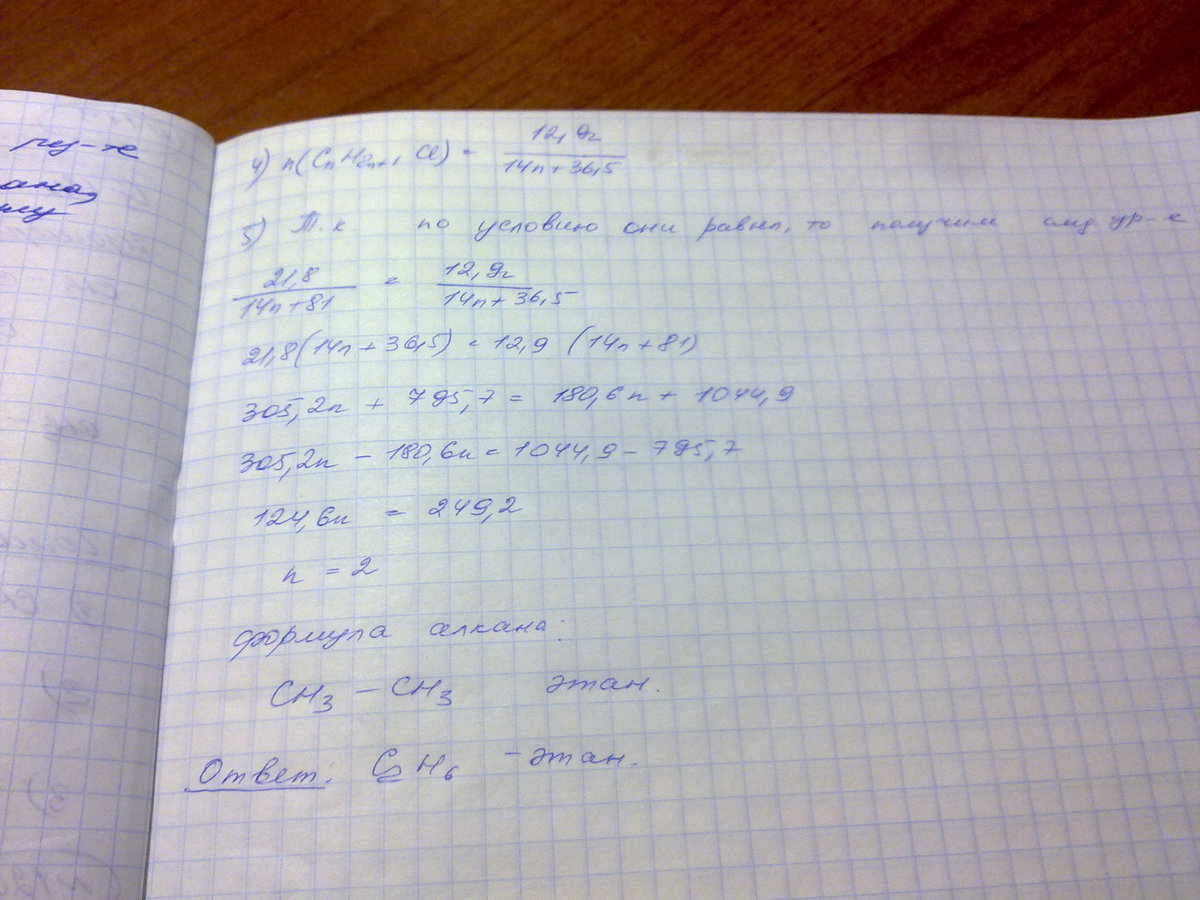 рез-те
4) n(CnH2n+1Cl) = 12,9г / 14n+36,5
5) Т.к по условию они равны, то получим след ур-е
21,8 / 14n+81 = 12,9г / 14n+36,5
21,8(14n+36,5) = 12,9 (14n+81)
305,2n + 795,7 = 180,6n + 1044,9
305,2n - 180,6n = 1044,9 - 795,7
124,6n = 249,2
n = 2
формула алкана:
CH3 - CH3 этан.
Ответ: C2H6 - этан.